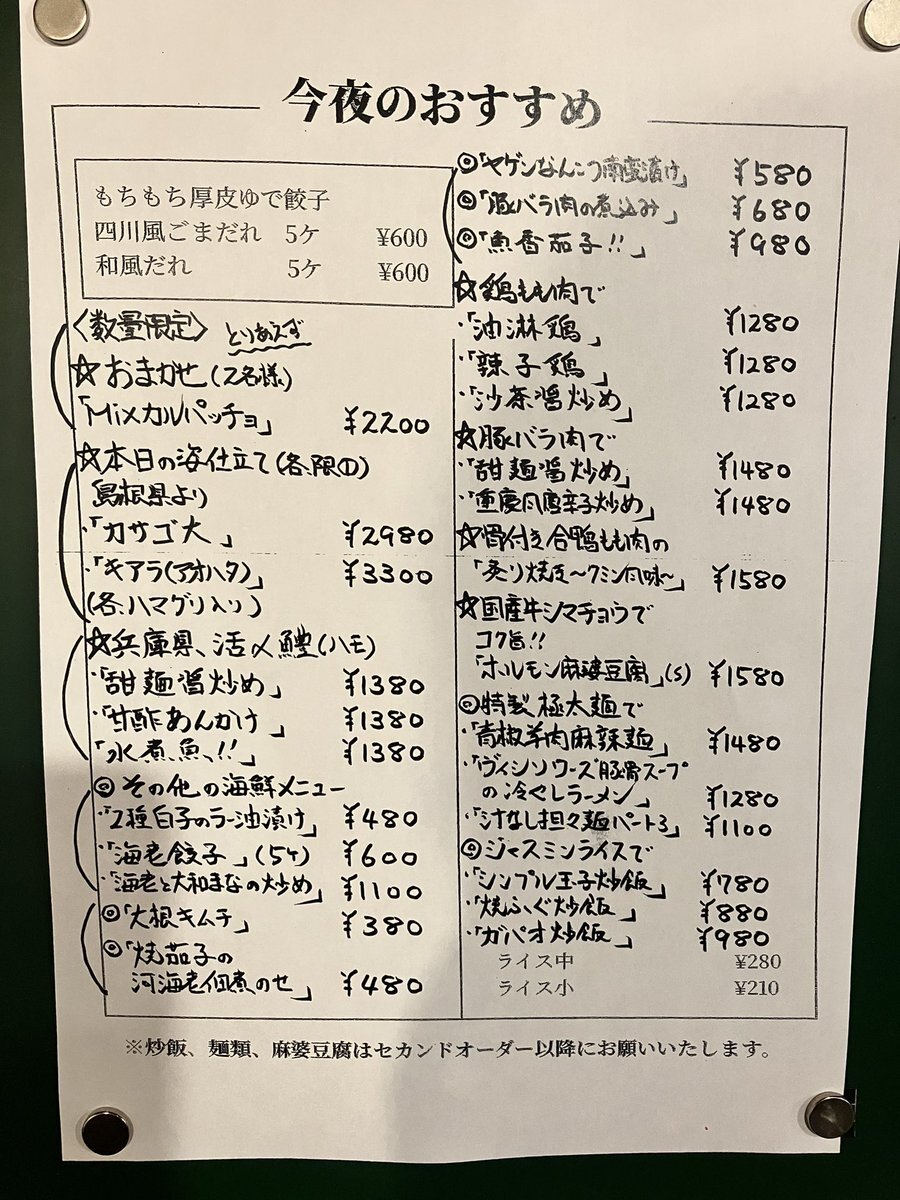 今夜のおすすめ
もちもち厚皮ゆで餃子
四川風ごまだれ 5ケ ¥600
和風だれ 5ケ ¥600
〈数量限定〉 とりあえず
☆おまかせ(2名様)
「Mixカルパッチョ」 ¥2200
☆本日の姿仕立て(各、限①)
島根県より
・「カサゴ大」 ¥2980
・「キアラ(アオハタ)」 ¥3300
(各、ハマグリ入り)
☆兵庫県、活〆鱧(ハモ)
・「甜麺醤炒め」 ¥1380
・「甘酢あんかけ」 ¥1380
「水煮魚、!!」 ¥1380
◎その他の海鮮メニュー
・「2種白子のラー油漬け」 ¥480
・「海老餃子」(5ケ) ¥600
・「海老と大和まなの炒め」 ¥1100
◎「大根キムチ」 ¥380
◎「焼茄子の
河海老佃煮のせ」 ¥480
◎「ヤゲンなんこつ南蛮漬け」 ¥580
◎「豚バラ肉の煮込み」 ¥680
◎「魚香茄子!!」 ¥980
☆鶏もも肉で
・「油淋鶏」 ¥1280
・「辣子鶏」 ¥1280
・「沙茶醤炒め」 ¥1280
☆豚バラ肉で
・「甜麺醤炒め」 ¥1480
・「重慶風唐辛子炒め」 ¥1480
☆骨付き合鴨もも肉の
「炙り焼き〜クミン風味〜」 ¥1580
☆国産牛シマチョウで
コク旨!!
「ホルモン麻婆豆腐」(S) ¥1580
◎特製極太麺で
・「青椒羊肉麻辣麺」 ¥1480
・「ヴィシソワーズ豚骨スープ
の冷やしラーメン」 ¥1280
・「汁なし担々麺パート3」 ¥1100
◎ジャスミンライスで
・「シンプル玉子炒飯」 ¥780
・「焼ふぐ炒飯」 ¥880
・「ガパオ炒飯」 ¥980
ライス中 ¥280
ライス小 ¥210
※炒飯、麺類、麻婆豆腐はセカンドオーダー以降にお願いいたします。